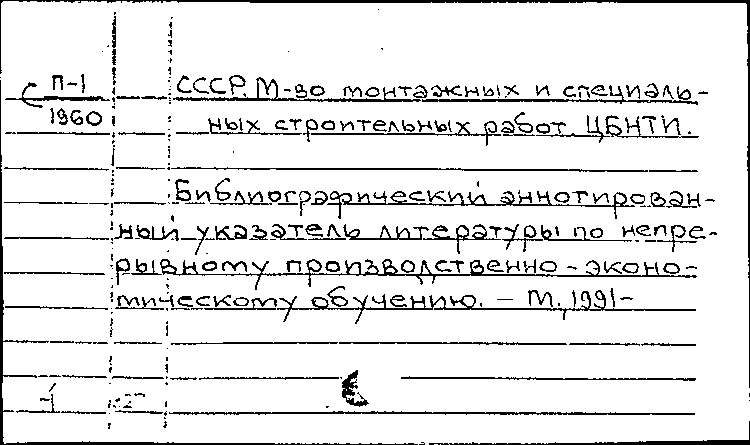 С П-1
1960
СССР. М-во монтажных и специаль-
ных строительных работ. ЦБНТИ.
Библиографический аннотирован-
ный указатель литературы по непре-
рывному производственно-эконо-
мическому обучению. – М., 1991-